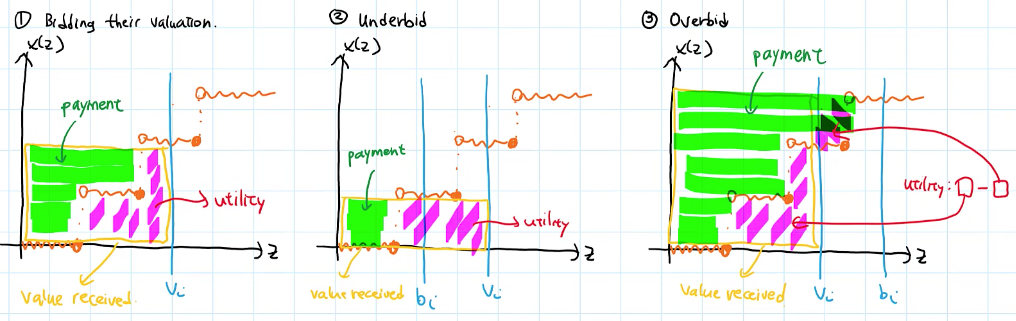 ① Bidding their valuation.
x(z)
payment
utility
z
value received
Vi
② Underbid
x(z)
payment
utility
z
value received
bi
Vi
③ Overbid
x(z)
payment
utility: □ - □
z
value received
Vi
bi